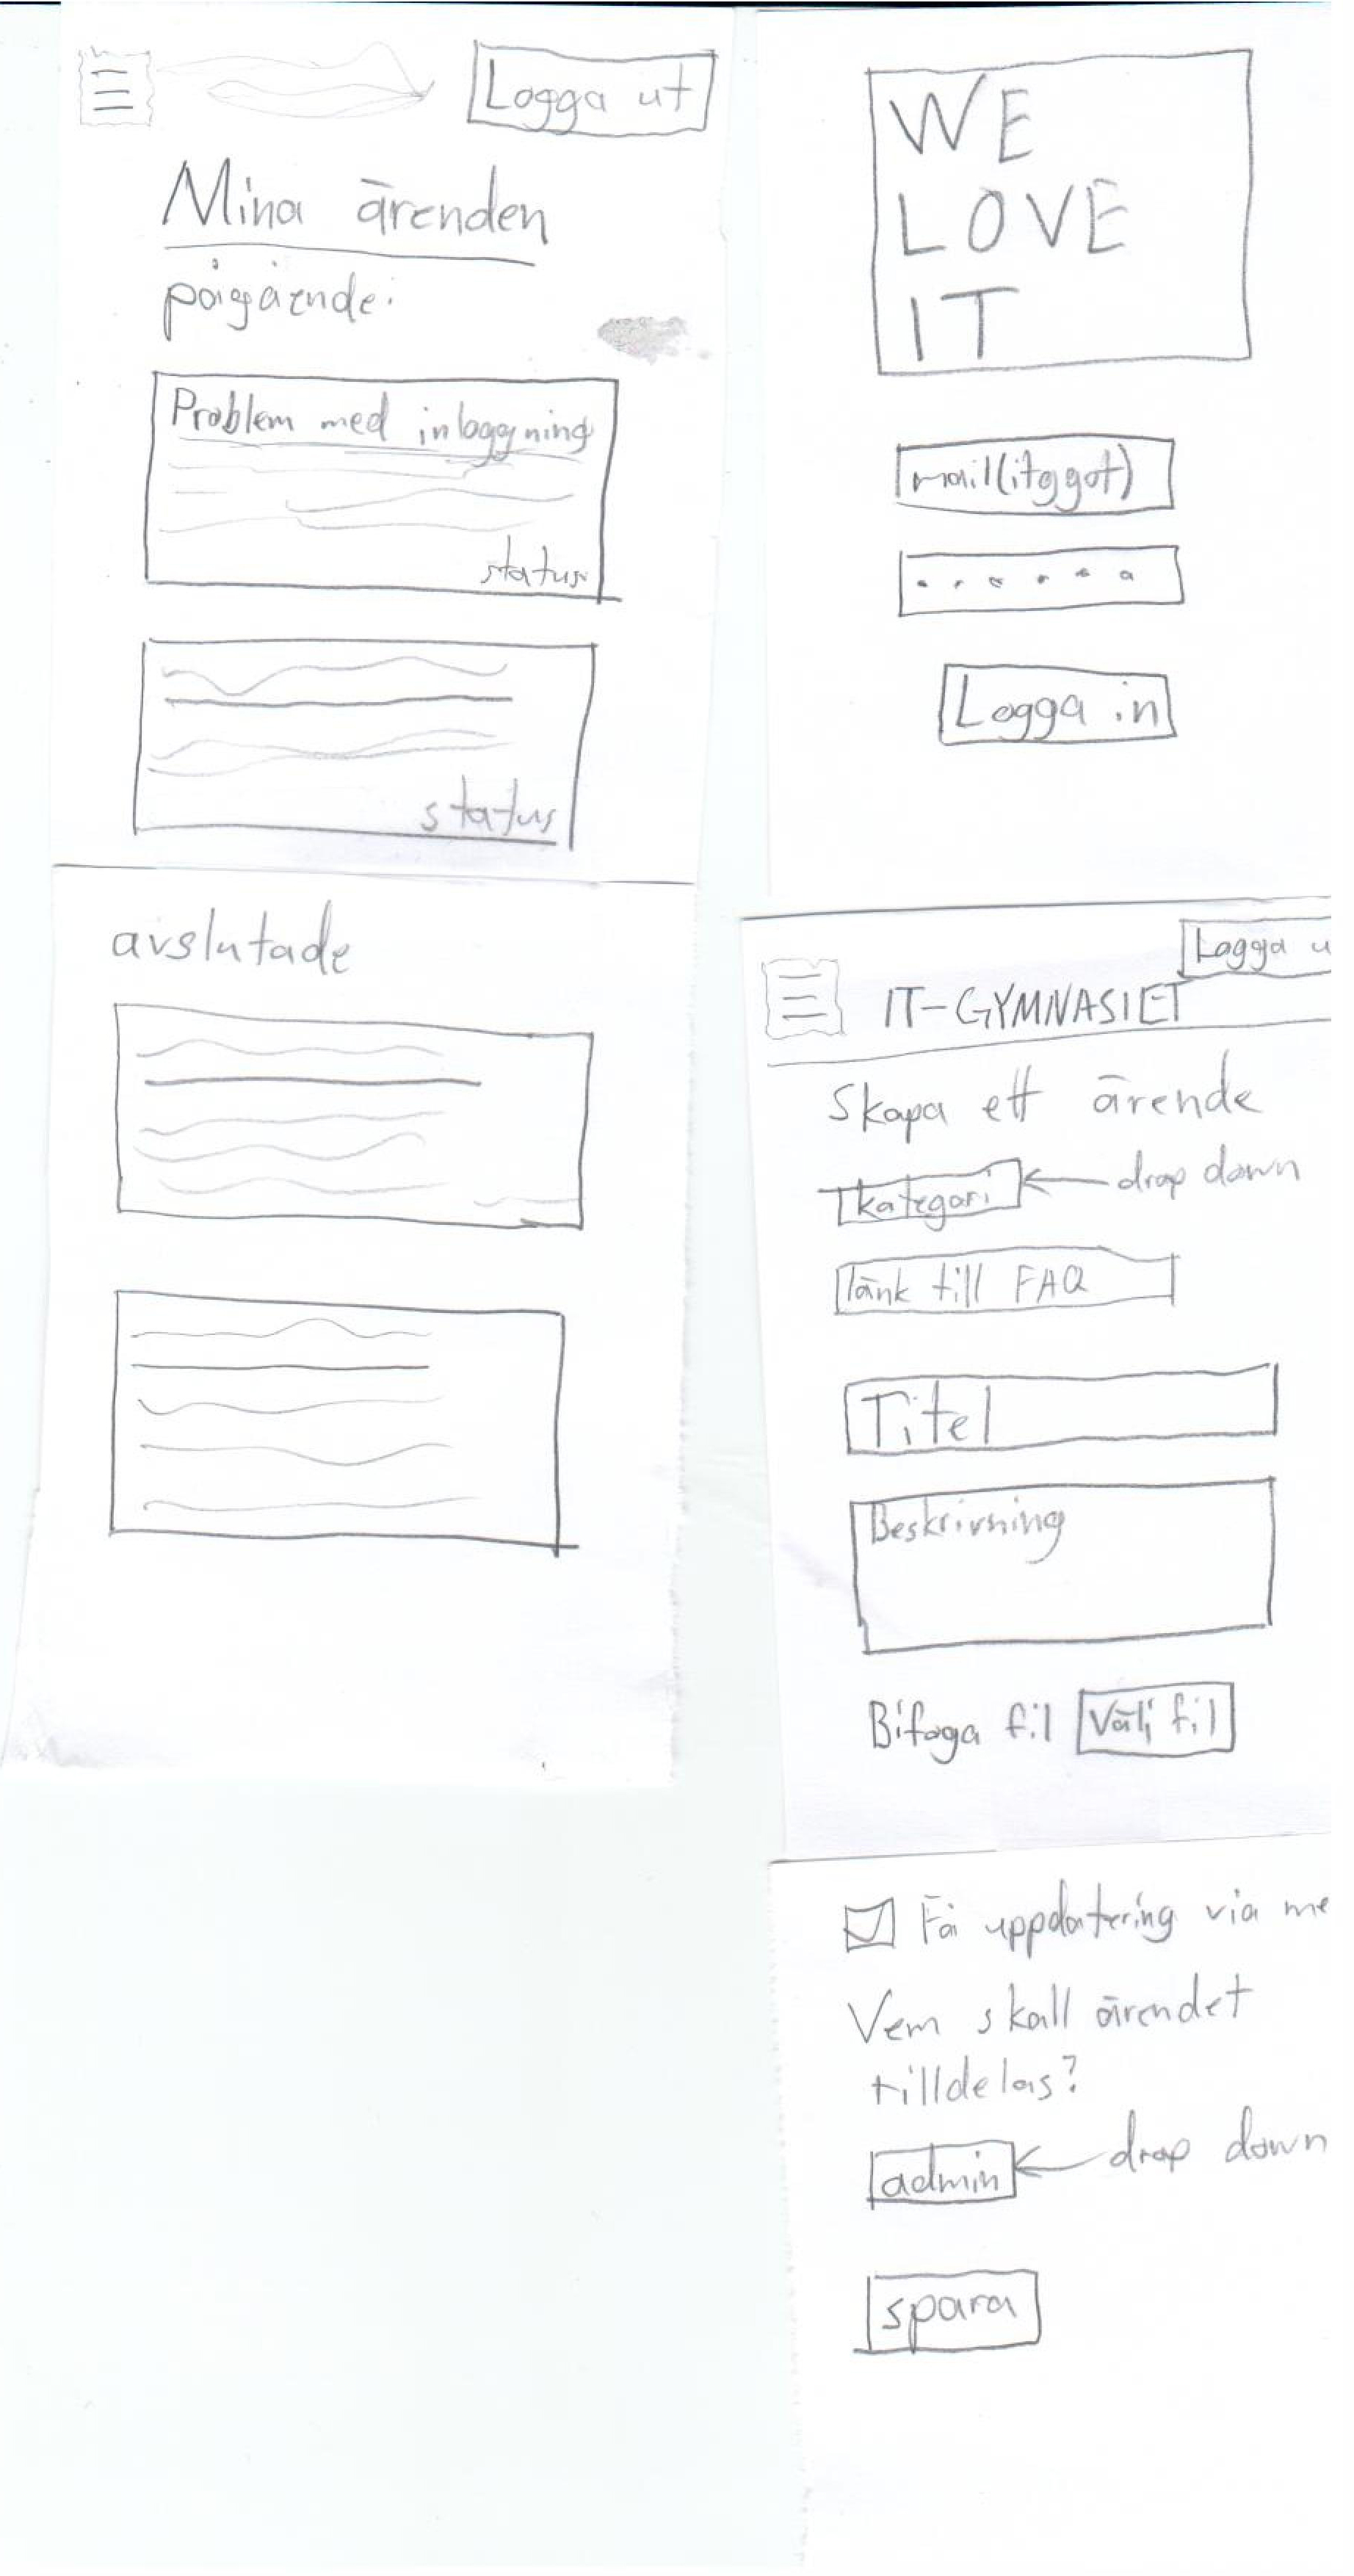 Logga ut
Mina ärenden
pågående:
Problem med inloggning
status
status
avslutade
WE
LOVE
IT
mail(itggot)
Logga in
Logga u
IT-GYMNASIET
Skapa ett ärende
kategori
drop down
länk till FAQ
Titel
Beskrivning
Bifoga fil
Välj fil
Få uppdatering via me
Vem skall ärendet
tilldelas?
admin
drop down
spara